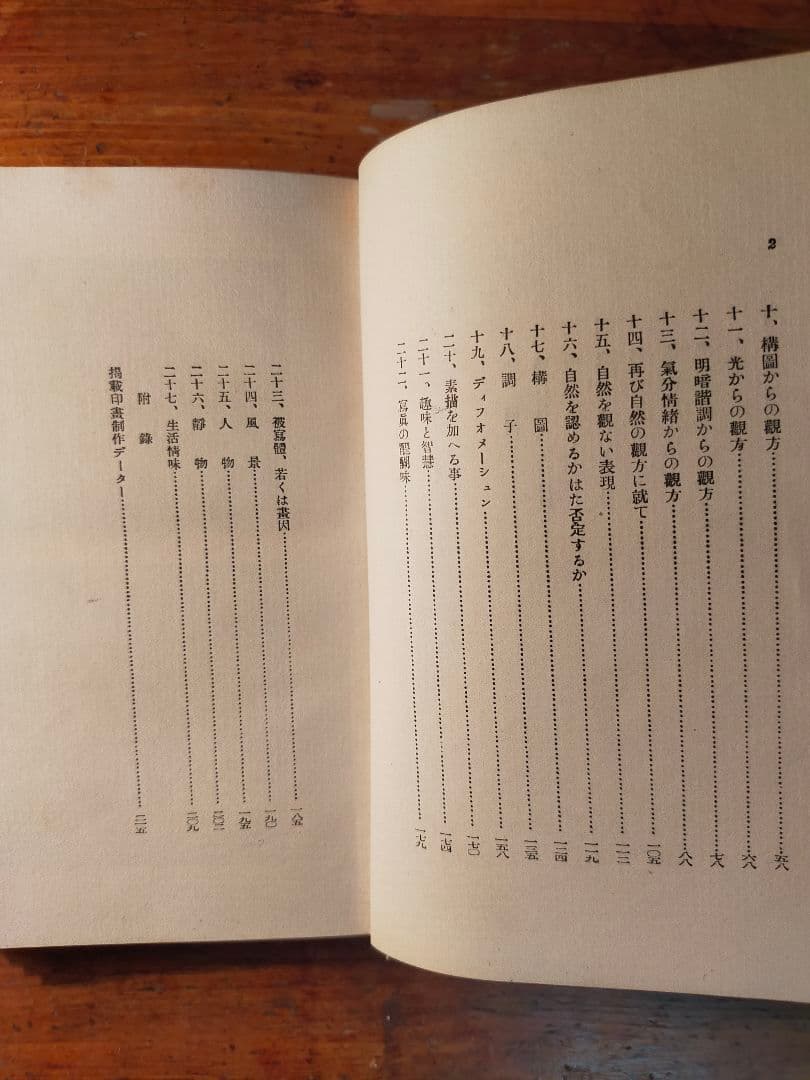 2
十、構圖からの觀方……五八
十一、光からの觀方……六八
十二、明暗諧調からの觀方……七八
十三、氣分情緒からの觀方……八八
十四、再び自然の觀方に就て……一〇五
十五、自然を觀ない表現……一一二
十六、自然を認めるかはた否定するか……一一九
十七、構圖……一二四
十八、調子……一三五
十九、ディフォメーシュン……一五八
二十、素描を加へる事……一七〇
二十一、趣味と智慧……一七四
二十二、寫眞の醍醐味……一七九
二十三、被寫體、若くは畫因……一八五
二十四、風景……一九〇
二十五、人物……一九五
二十六、靜物……二〇二
二十七、生活情味……二〇九
附錄
揭載印畫制作データー……二一五